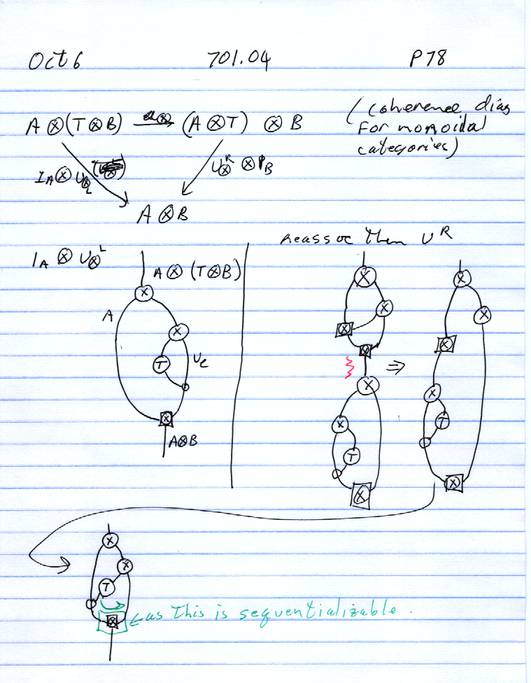 Oct 6 701.04 P78
A ⊗ (T ⊗ B) → (A ⊗ T) ⊗ B
(coherence diag
for monoidal
categories)
I_A ⊗ U_⊗^L
U_⊗^R ⊗ I_B
A ⊗ B
I_A ⊗ U_⊗^L
reassoc then U^R
A ⊗ (T ⊗ B)
A
U_L
T
A ⊗ B
⇒
T
T
T
as this is sequentializable.